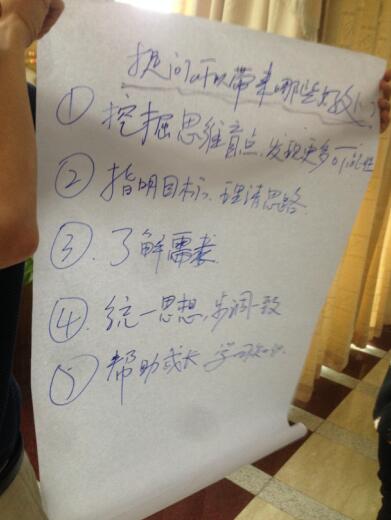 提问可以带来哪些好处?
① 挖掘思维盲点、发现更多可能性
② 指明目标、理清思路
③、了解需求
④、统一思想,步调一致
⑤、帮助成长 学